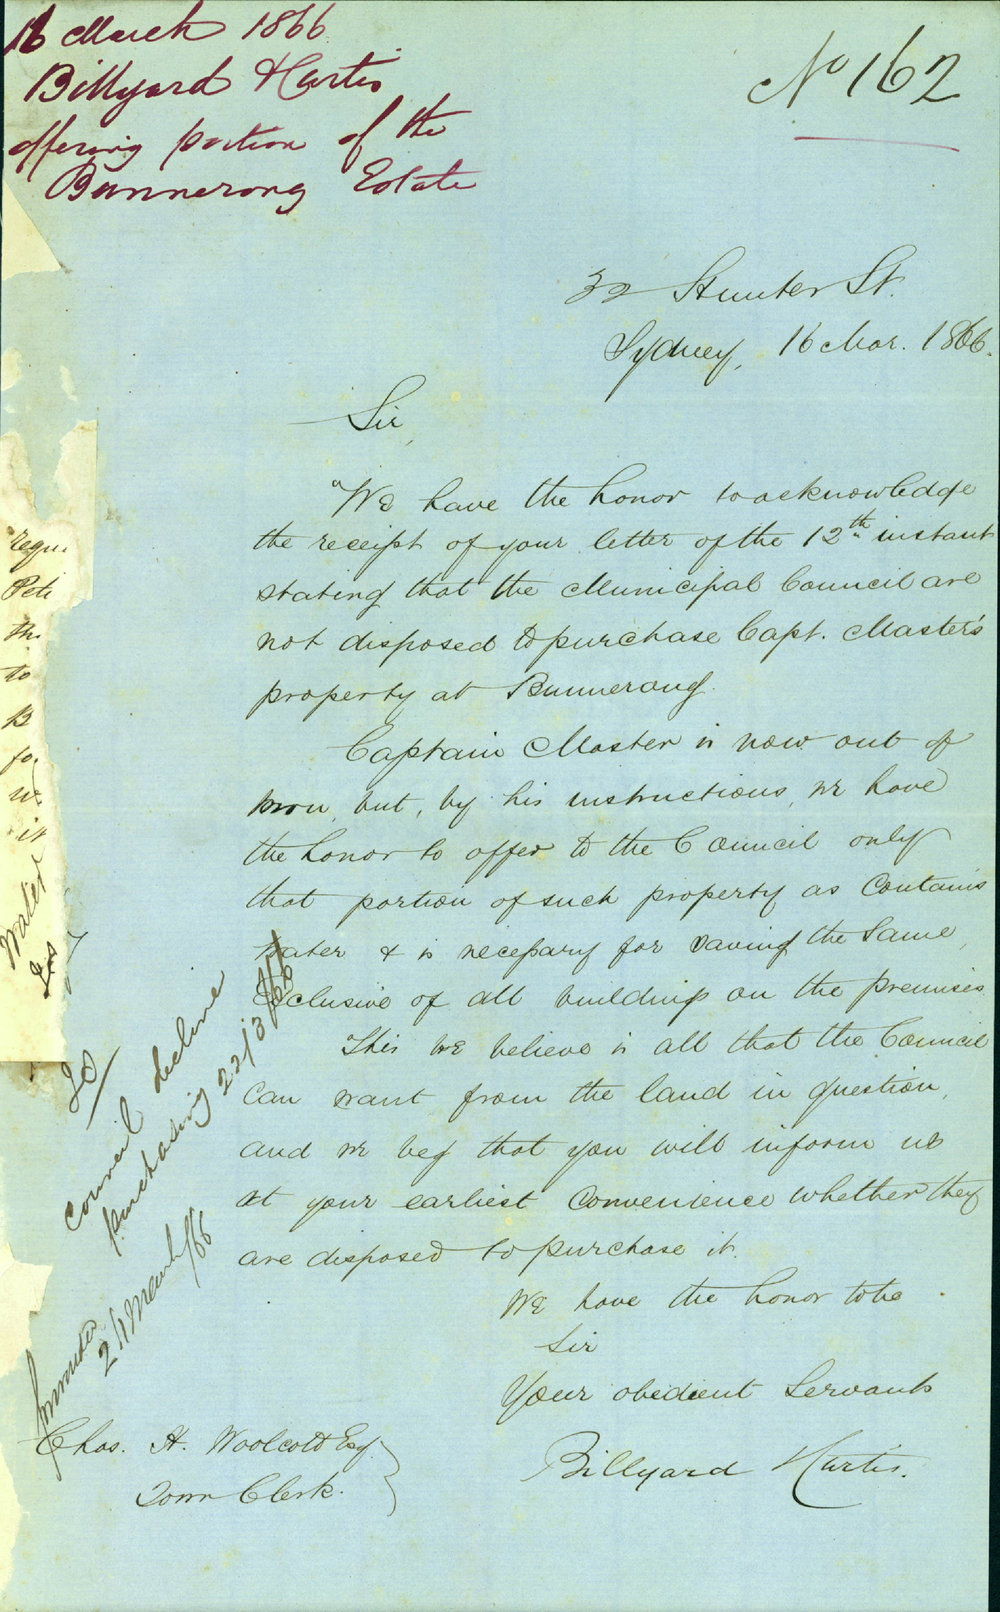 16 March 1866
Billyard & Curtis
offering portion of the
Bunnerong Estate
No 162
32 Hunter St.
Sydney, 16 Mar. 1866.
Sir,
We have the honor to acknowledge
the receipt of your letter of the 12th instant
stating that the Municipal Council are
not disposed to purchase Capt. Master's
property at Bunnerong.
Captain Master is now out of
town, but, by his instructions, we have
the honor to offer to the Council only
that portion of such property as contains
water & is necessary for saving the same,
exclusive of all buildings on the premises.
This we believe is all that the Council
can want from the land in question,
and we beg that you will inform us
at your earliest convenience whether they
are disposed to purchase it.
We have the honor to be
Sir
Your obedient Servants
Billyard & Curtis.
Chas. H. Woolcott Esq.
Town Clerk.
Council decline
purchasing 22/3/66
21 March/66
requ
Peti
the
to
B
fo
we
it
Water